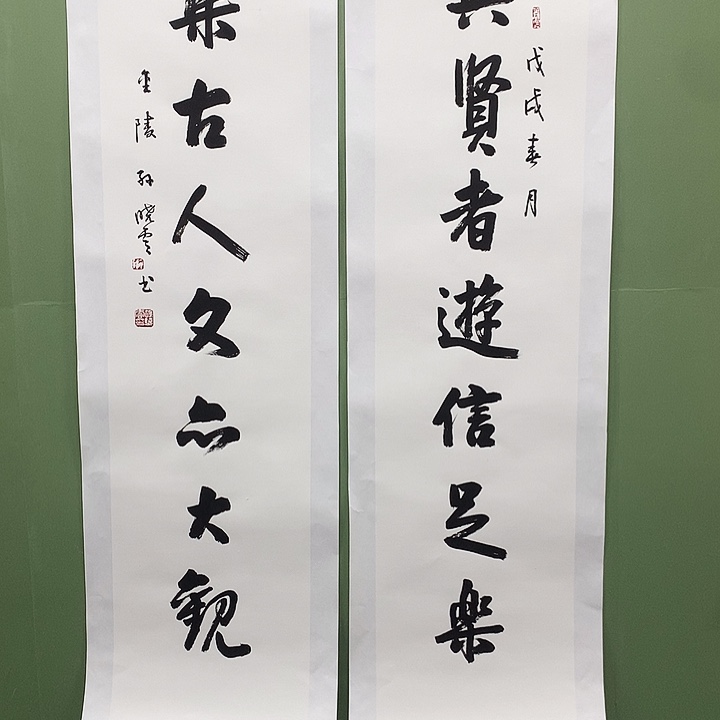 戊戌春月
賢者遊信足樂
集古人文亦大觀
金陵孫曉雲書